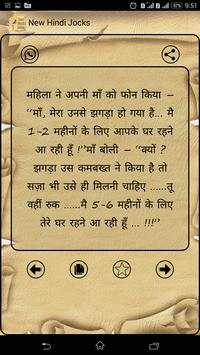 9:51
New Hindi Jocks
महिला ने अपनी माँ को फोन किया –
"माँ, मेरा उनसे झगड़ा हो गया है... मै
1-2 महीनों के लिए आपके घर रहने
आ रही हूँ !"माँ बोली – "क्यों ?
झगड़ा उस कमबख्त ने किया है तो
सज़ा भी उसे ही मिलनी चाहिए ......तू
वहीं रुक ....मै 5-6 महीनों के लिए
तेरे घर रहने आ रही हूँ ... !!!"